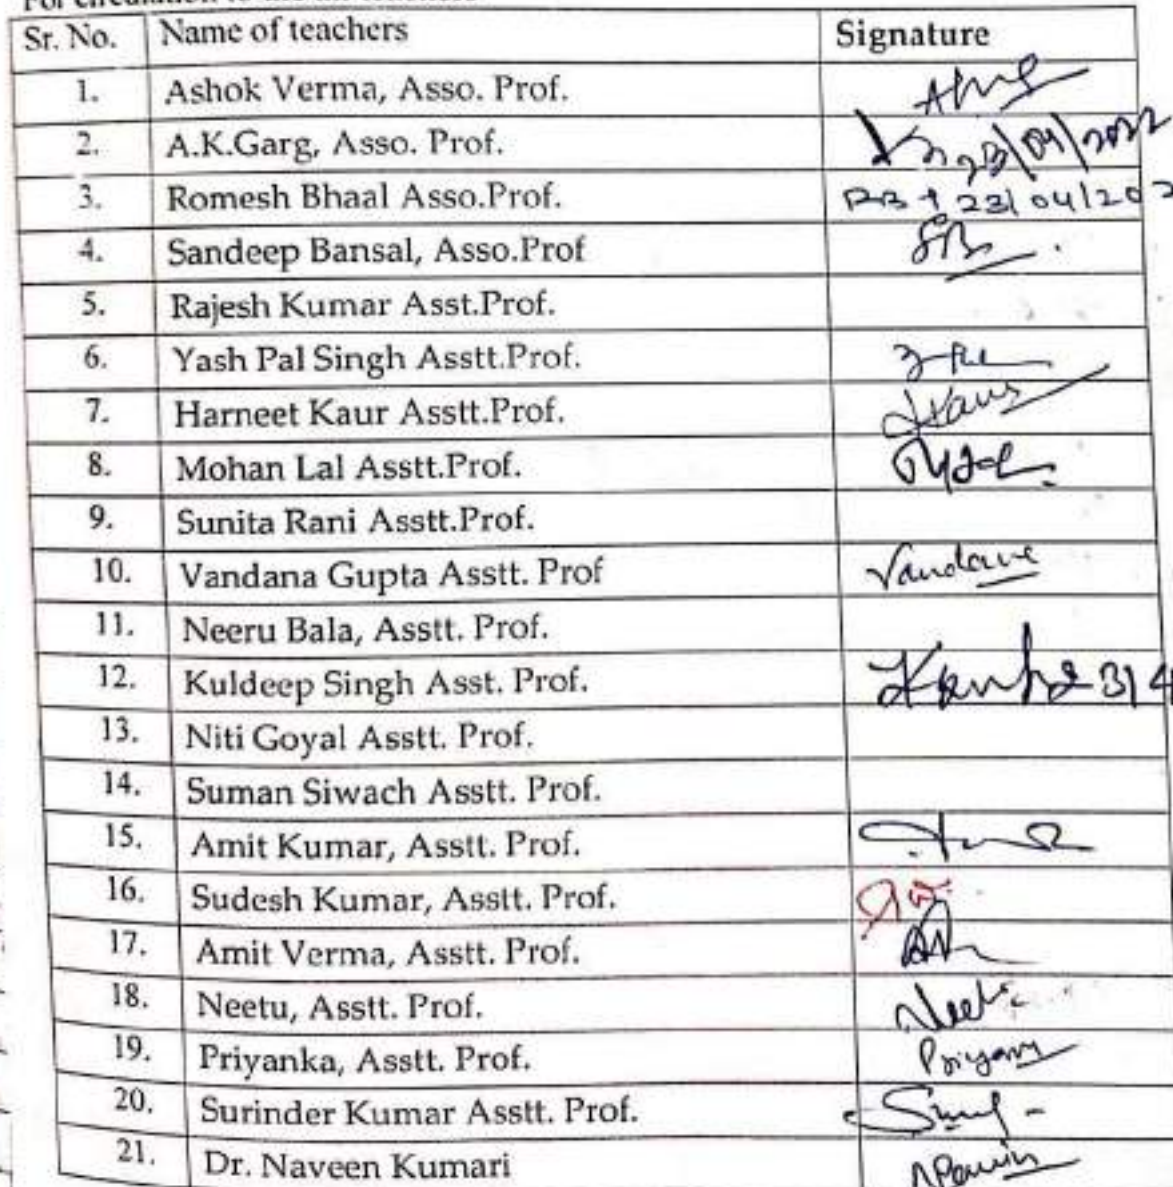 For circulation to all teachers
Sr. No. Name of teachers Signature
1. Ashok Verma, Asso. Prof.
2. A.K.Garg, Asso. Prof. 23/04/2022
3. Romesh Bhaal Asso.Prof. 23/04/202
4. Sandeep Bansal, Asso.Prof SB
5. Rajesh Kumar Asst.Prof.
6. Yash Pal Singh Asstt.Prof.
7. Harneet Kaur Asstt.Prof. HKaur
8. Mohan Lal Asstt.Prof.
9. Sunita Rani Asstt.Prof.
10. Vandana Gupta Asstt. Prof Vandana
11. Neeru Bala, Asstt. Prof.
12. Kuldeep Singh Asst. Prof.
13. Niti Goyal Asstt. Prof.
14. Suman Siwach Asstt. Prof.
15. Amit Kumar, Asstt. Prof.
16. Sudesh Kumar, Asstt. Prof.
17. Amit Verma, Asstt. Prof.
18. Neetu, Asstt. Prof. Neetu
19. Priyanka, Asstt. Prof. Priyanka
20. Surinder Kumar Asstt. Prof.
21. Dr. Naveen Kumari